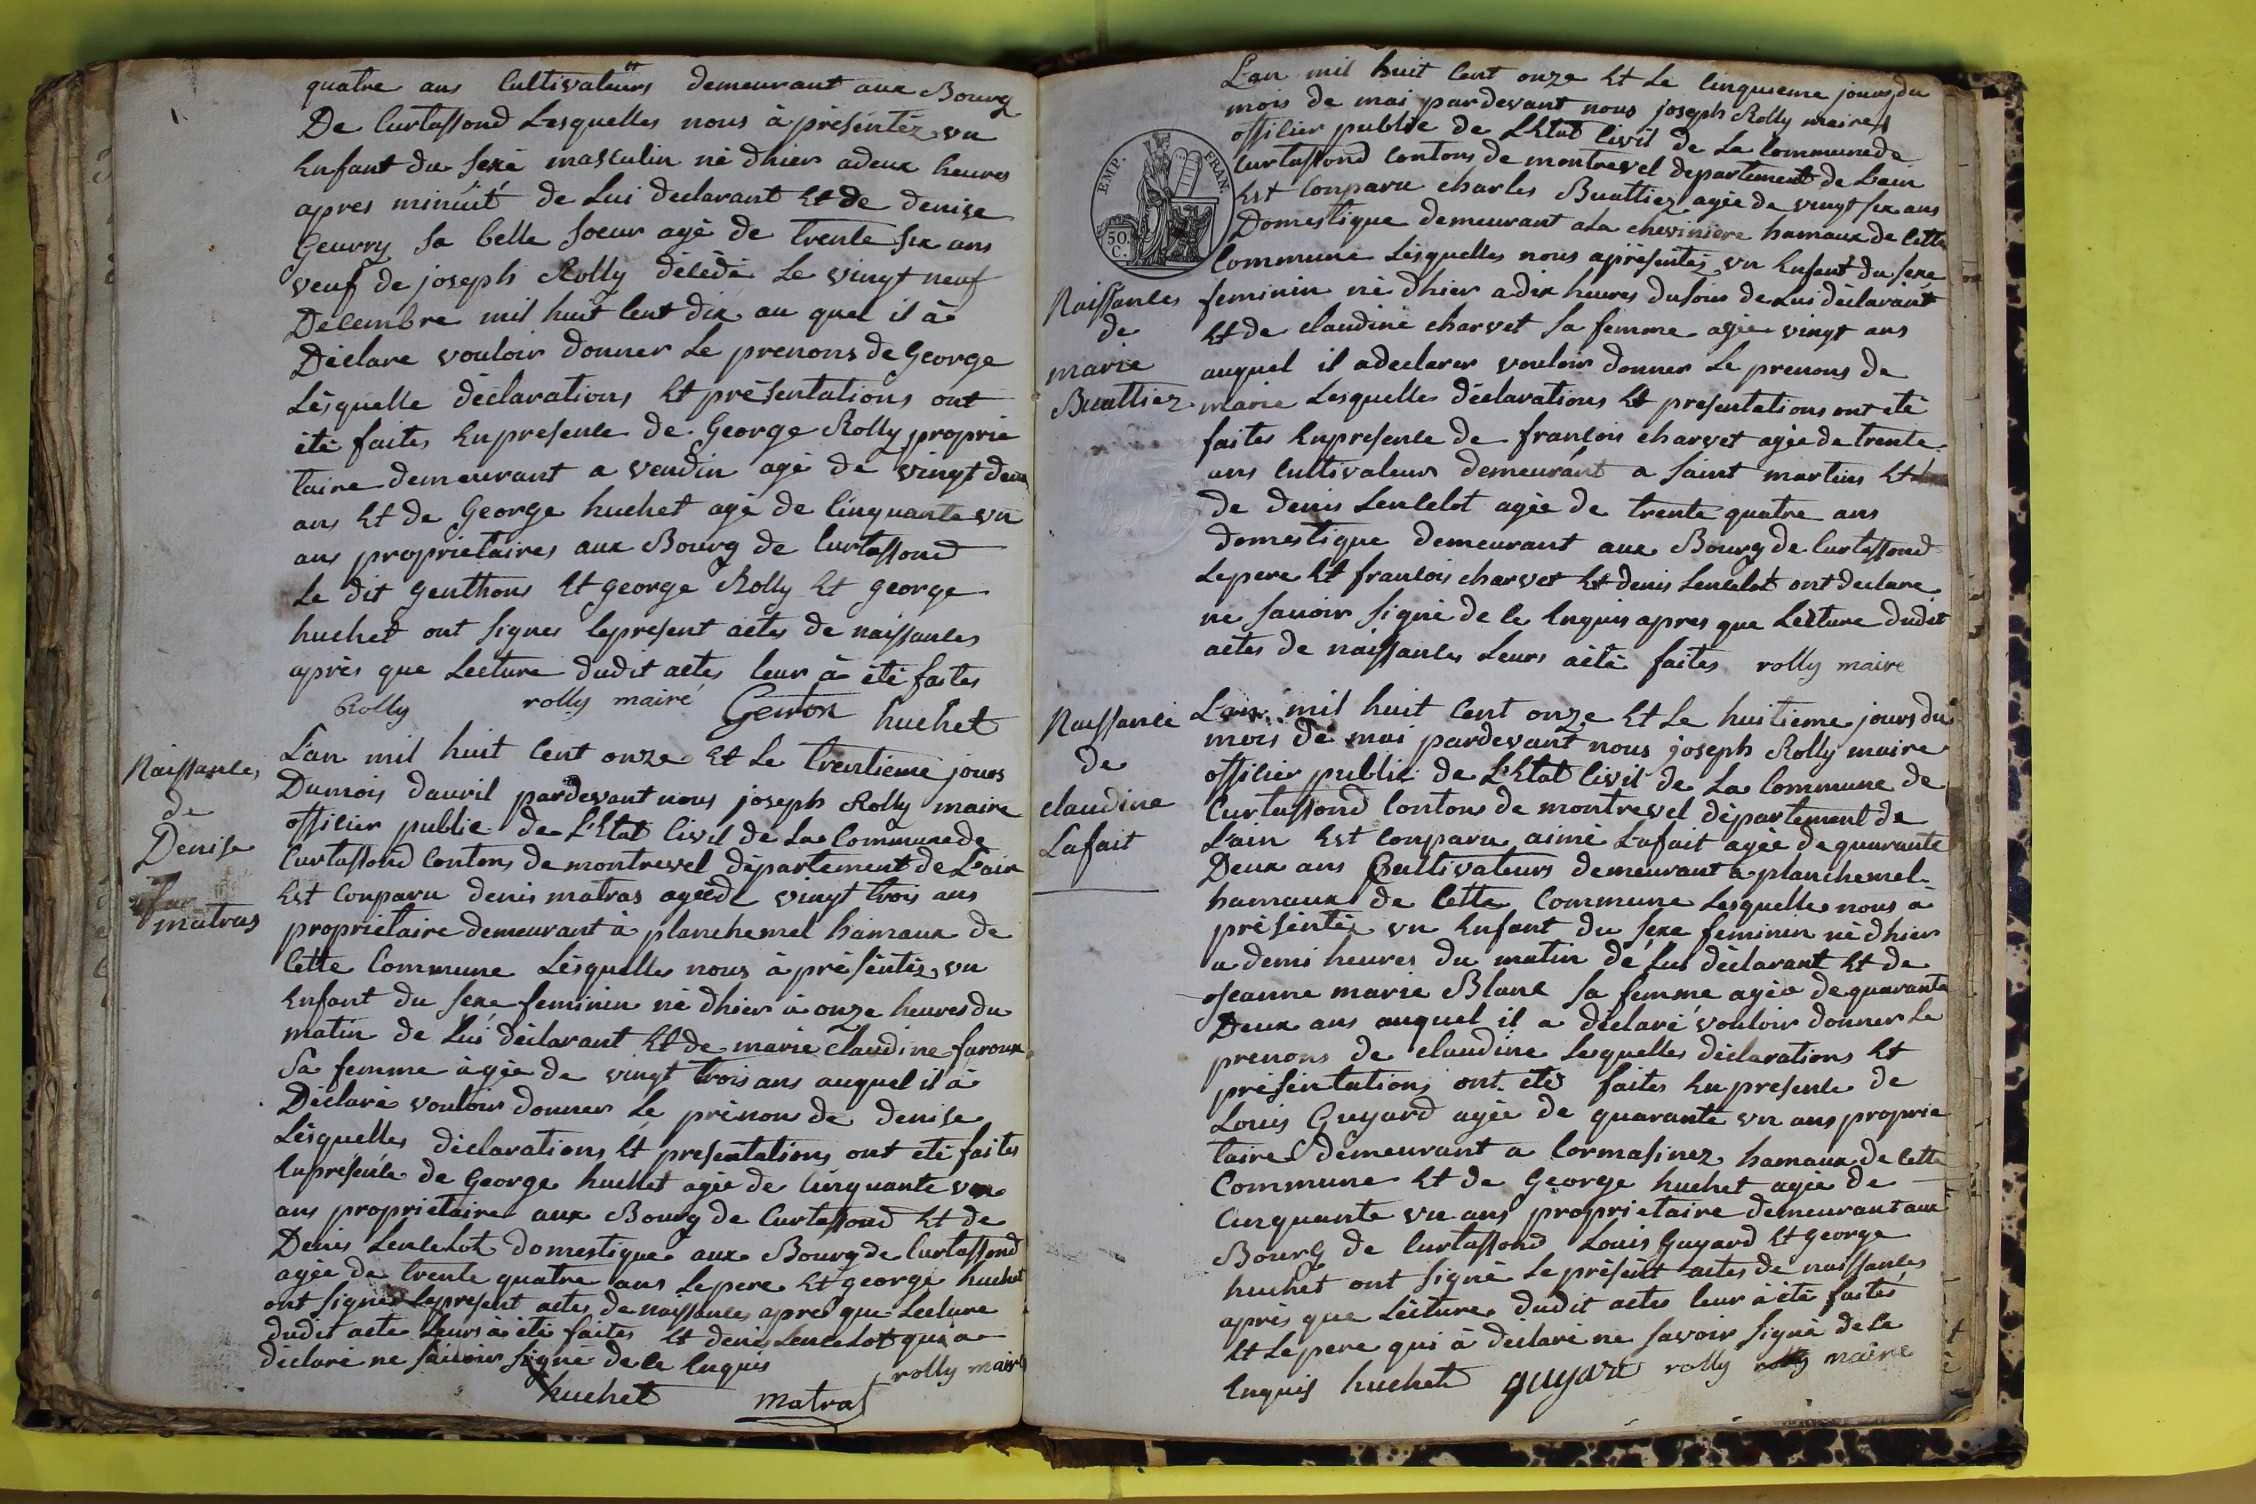 quatre ans Cultivateurs demeurant aux Bourg
De Curtafsond Lesquelles nous à présentéz un
Enfant du sexé masculin né dhier adeux heures
apres minuit de Lui declarant Et de denise
Geurry sa belle soeur agé de trente six ans
veuf de joseph Rolly décédé Le vingt neuf
Decembre mil huit Cent dix au quel il à
Déclare vouloir donner Le prenons de George
Lésquelle déclarations Et présentations ont
été faites Enpresence de George Rolly proprie
taire demeurant a vendin agé de vingt deux
ans Et de George huchet agé de Cinquante un
ans proprietaires aux Bourg de Curtafsond
Le dit Genthons Et george Rolly Et george
huchet ont signes Lepresent actes de naissances
après que Lecture dudit actes leur à été faites
Rolly rolly mairé Genton huchet
Naissances
de
Denise
matras
L'an mil huit Cent onze Et Le trentieme jours
Dumois davril pardevant nous joseph Rolly maire
officier public de L'Etat Civil de La Communede
Curtafsond Contons de montrevel département de L'ain
Est Conparu denis matras ageéde vingt trois ans
proprietaire demeurant à planchemel hamaux de
Cette Commune Lésquelles nous à présentéz un
Enfant du sexe feminin né dhier à onze heures du
matin de Lui déclarant Et de marie claudine faroux
Sa femme àgée de vingt trois ans auquel il à
Déclaré vouloir donner Le prénons de denise
Lésquelles déclarations Et presentations ont été faites
Enpresénce de George huchet agée de Cinquante un
ans proprietaire aux Bourg de Curtafsond Et de
Denis Lencelot domestique aux Bourg de Curtafsond
agée de trente quatre ans Lepere Et george huchet
ont signes Lepresent actes de naissances apres que Lecture
dudit acte Leurs à été faites Et denis Lencelot qui a
déclaré ne savoir signé de Ce Enquis rolly maire
huchet matras
L'an mil huit Cent onze Et Le Cinquieme jours du
mois de mai pardevant nous joseph Rolly maire
officier public de L'Etat Civil de La Communede
Curtafsond Contons de montrevel departement de L'ain
Est Conparu charles Buattiez agée de vingt six ans
Domestique demeurant ala cheviniere hamaux de Cette
Commune Lésquelles nous aprésentéz un Enfant du sexe
feminin né dhier a dix heures dusoir de Lui déclarant
Et de claudine charvet sa femme agée vingt ans
auquel il adeclarer vouloir donner Le prenons de
marie Lesquelles déclarations Et presentations ont été
faites Enpresence de francois charvet agée de trente
ans Cultivateurs demeurant a saint martins Et
de denis Lencelot agée de trente quatre ans
domestique demeurant aux Bourg de Curtafsond
Lepere Et francois charvet Et denis Lencelot ont declare
ne savoir signé de Ce Enquis apres que Lecture dudit
actes de naissances Leurs aété faites rolly maire
EMP. FRAN.
50
C.
Naissances
de
marie
Buattiez
Naissance
de
claudine
Lafait
L'an mil huit Cent onze Et Le huitieme jours du
mois de mai pardevant nous joseph Rolly maire
officier public de L'Etat Civil de La Commune de
Curtafsond Contons de montrevel département de
L'ain Est Conparu aimé Lafait agée de quarante
Deux ans Cultivateurs demeurant à planchemel
hamaux de Cette Commune Lesquelles nous à
présentéz un Enfant du sexe feminin né dhier
a demi heures du matin de Lui déclarant Et de
Jeanne marie Blanc sa femme agée de quarante
Deux ans auquel il a déclaré vouloir donner Le
prenons de claudine Lesquelles déclarations Et
présentations ont étés faites Enpresence de
Louis Guyard agée de quarante un ans proprie
taire demeurant a Cormasinez hamaux de Cette
Commune Et de George huchet agée de
Cinquante un ans proprietaire demeurant aux
Bourg de Curtafsond Louis Guyard Et George
huchet ont signé Le présent actes de naissances
après que Lécture dudit actes leur à été faites
Et Lepere qui à déclaré ne savoir signé de Ce
Enquis huchet guyard rolly rolly maire